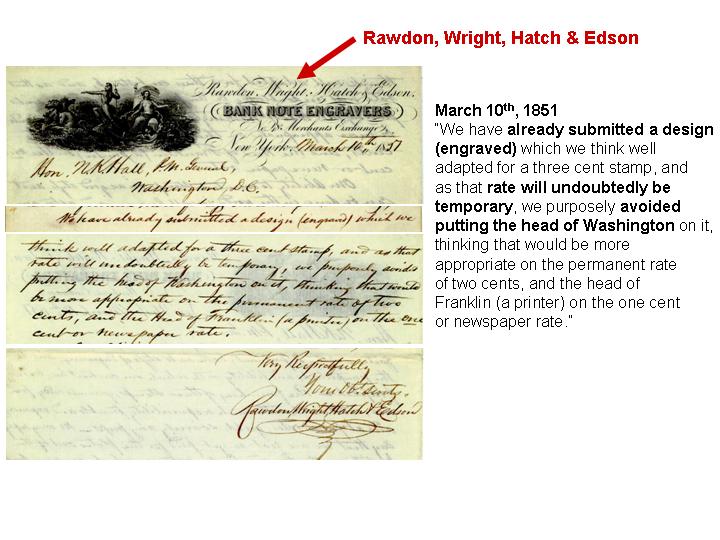 Rawdon, Wright, Hatch & Edson
Rawdon, Wright, Hatch & Edson.
BANK NOTE ENGRAVERS
Merchants Exchange
New York, March 10th, 1851
Hon. N.K. Hall, P.M. General,
Washington D.C.
We have already submitted a design (engraved) which we
think well adapted for a three cent stamp, and as that
rate will undoubtedly be temporary, we purposely avoided
putting the head of Washington on it, thinking that would
be more appropriate on the permanent rate of two
cents, and the Head of Franklin (a printer) on the one
cent or newspaper rate.
Very Respectfully
Your Ob. Servts.
Rawdon Wright Hatch & Edson
March 10th, 1851
"We have already submitted a design
(engraved) which we think well
adapted for a three cent stamp, and
as that rate will undoubtedly be
temporary, we purposely avoided
putting the head of Washington on it,
thinking that would be more
appropriate on the permanent rate
of two cents, and the head of
Franklin (a printer) on the one cent
or newspaper rate."